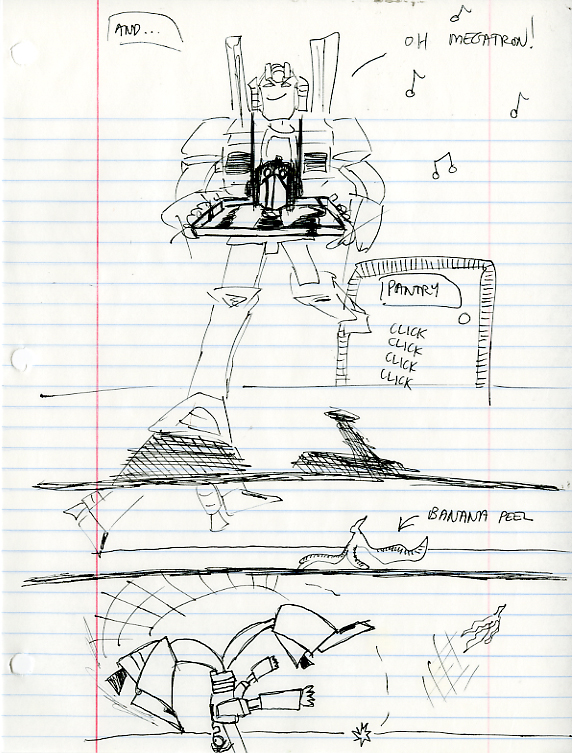 AND...
OH MEGATRON!
PANTRY
CLICK
CLICK
CLICK
CLICK
BANANA PEEL